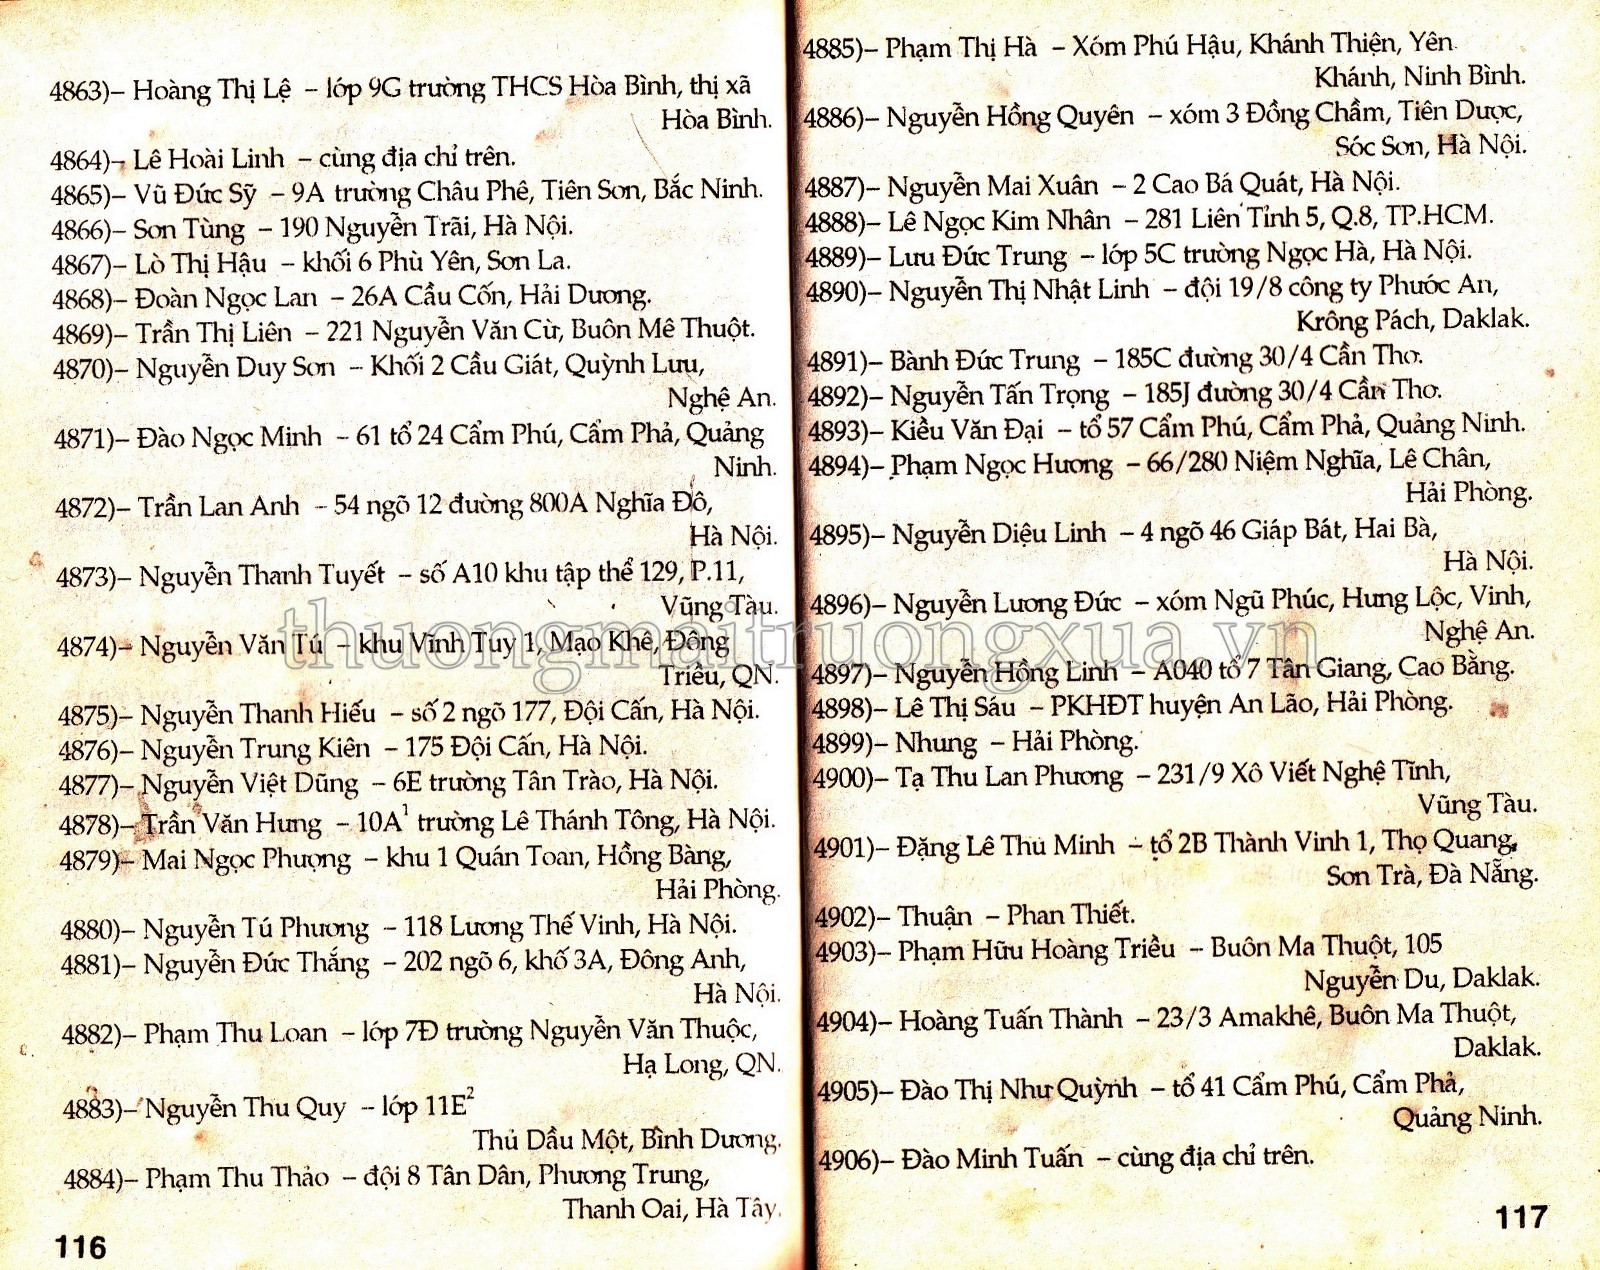 4863)– Hoàng Thị Lệ – lớp 9G trường THCS Hòa Bình, thị xã
Hòa Bình.
4864)– Lê Hoài Linh – cùng địa chỉ trên.
4865)– Vũ Đức Sỹ – 9A trường Châu Phê, Tiên Sơn, Bắc Ninh.
4866)– Sơn Tùng – 190 Nguyễn Trãi, Hà Nội.
4867)– Lò Thị Hậu – khối 6 Phù Yên, Sơn La.
4868)– Đoàn Ngọc Lan – 26A Cầu Cốn, Hải Dương.
4869)– Trần Thị Liên – 221 Nguyễn Văn Cừ, Buôn Mê Thuột.
4870)– Nguyễn Duy Sơn – Khối 2 Cầu Giát, Quỳnh Lưu,
Nghệ An.
4871)– Đào Ngọc Minh – 61 tổ 24 Cẩm Phú, Cẩm Phả, Quảng
Ninh.
4872)– Trần Lan Anh – 54 ngõ 12 đường 800A Nghĩa Đô,
Hà Nội.
4873)– Nguyễn Thanh Tuyết – số A10 khu tập thể 129, P.11,
Vũng Tàu.
4874)– Nguyễn Văn Tú – khu Vĩnh Tuy 1, Mạo Khê, Đông
Triều, QN.
4875)– Nguyễn Thanh Hiếu – số 2 ngõ 177, Đội Cấn, Hà Nội.
4876)– Nguyễn Trung Kiên – 175 Đội Cấn, Hà Nội.
4877)– Nguyễn Việt Dũng – 6E trường Tân Trào, Hà Nội.
4878)– Trần Văn Hưng – 10A¹ trường Lê Thánh Tông, Hà Nội.
4879)– Mai Ngọc Phượng – khu 1 Quán Toan, Hồng Bàng,
Hải Phòng.
4880)– Nguyễn Tú Phương – 118 Lương Thế Vinh, Hà Nội.
4881)– Nguyễn Đức Thắng – 202 ngõ 6, khố 3A, Đông Anh,
Hà Nội.
4882)– Phạm Thu Loan – lớp 7Đ trường Nguyễn Văn Thuộc,
Hạ Long, QN.
4883)– Nguyễn Thu Quy – lớp 11E²
Thủ Dầu Một, Bình Dương.
4884)– Phạm Thu Thảo – đội 8 Tân Dân, Phương Trung,
Thanh Oai, Hà Tây.
116
4885)– Phạm Thị Hà – Xóm Phú Hậu, Khánh Thiện, Yên
Khánh, Ninh Bình.
4886)– Nguyễn Hồng Quyên – xóm 3 Đồng Chầm, Tiên Dược,
Sóc Sơn, Hà Nội.
4887)– Nguyễn Mai Xuân – 2 Cao Bá Quát, Hà Nội.
4888)– Lê Ngọc Kim Nhân – 281 Liên Tỉnh 5, Q.8, TP.HCM.
4889)– Lưu Đức Trung – lớp 5C trường Ngọc Hà, Hà Nội.
4890)– Nguyễn Thị Nhật Linh – đội 19/8 công ty Phước An,
Krông Pách, Daklak.
4891)– Bành Đức Trung – 185C đường 30/4 Cần Thơ.
4892)– Nguyễn Tấn Trọng – 185J đường 30/4 Cần Thơ.
4893)– Kiều Văn Đại – tổ 57 Cẩm Phú, Cẩm Phả, Quảng Ninh.
4894)– Phạm Ngọc Hương – 66/280 Niệm Nghĩa, Lê Chân,
Hải Phòng.
4895)– Nguyễn Diệu Linh – 4 ngõ 46 Giáp Bát, Hai Bà,
Hà Nội.
4896)– Nguyễn Lương Đức – xóm Ngũ Phúc, Hưng Lộc, Vinh,
Nghệ An.
thuongmaitruongxua.vn
4897)– Nguyễn Hồng Linh – A040 tổ 7 Tân Giang, Cao Bằng.
4898)– Lê Thị Sáu – PKHĐT huyện An Lão, Hải Phòng.
4899)– Nhung – Hải Phòng.
4900)– Tạ Thu Lan Phương – 231/9 Xô Viết Nghệ Tĩnh,
Vũng Tàu.
4901)– Đặng Lê Thu Minh – tổ 2B Thành Vinh 1, Thọ Quang,
Sơn Trà, Đà Nẵng.
4902)– Thuận – Phan Thiết.
4903)– Phạm Hữu Hoàng Triều – Buôn Ma Thuột, 105
Nguyễn Du, Daklak.
4904)– Hoàng Tuấn Thành – 23/3 Amakhê, Buôn Ma Thuột,
Daklak.
4905)– Đào Thị Như Quỳnh – tổ 41 Cẩm Phú, Cẩm Phả,
Quảng Ninh.
4906)– Đào Minh Tuấn – cùng địa chỉ trên.
117